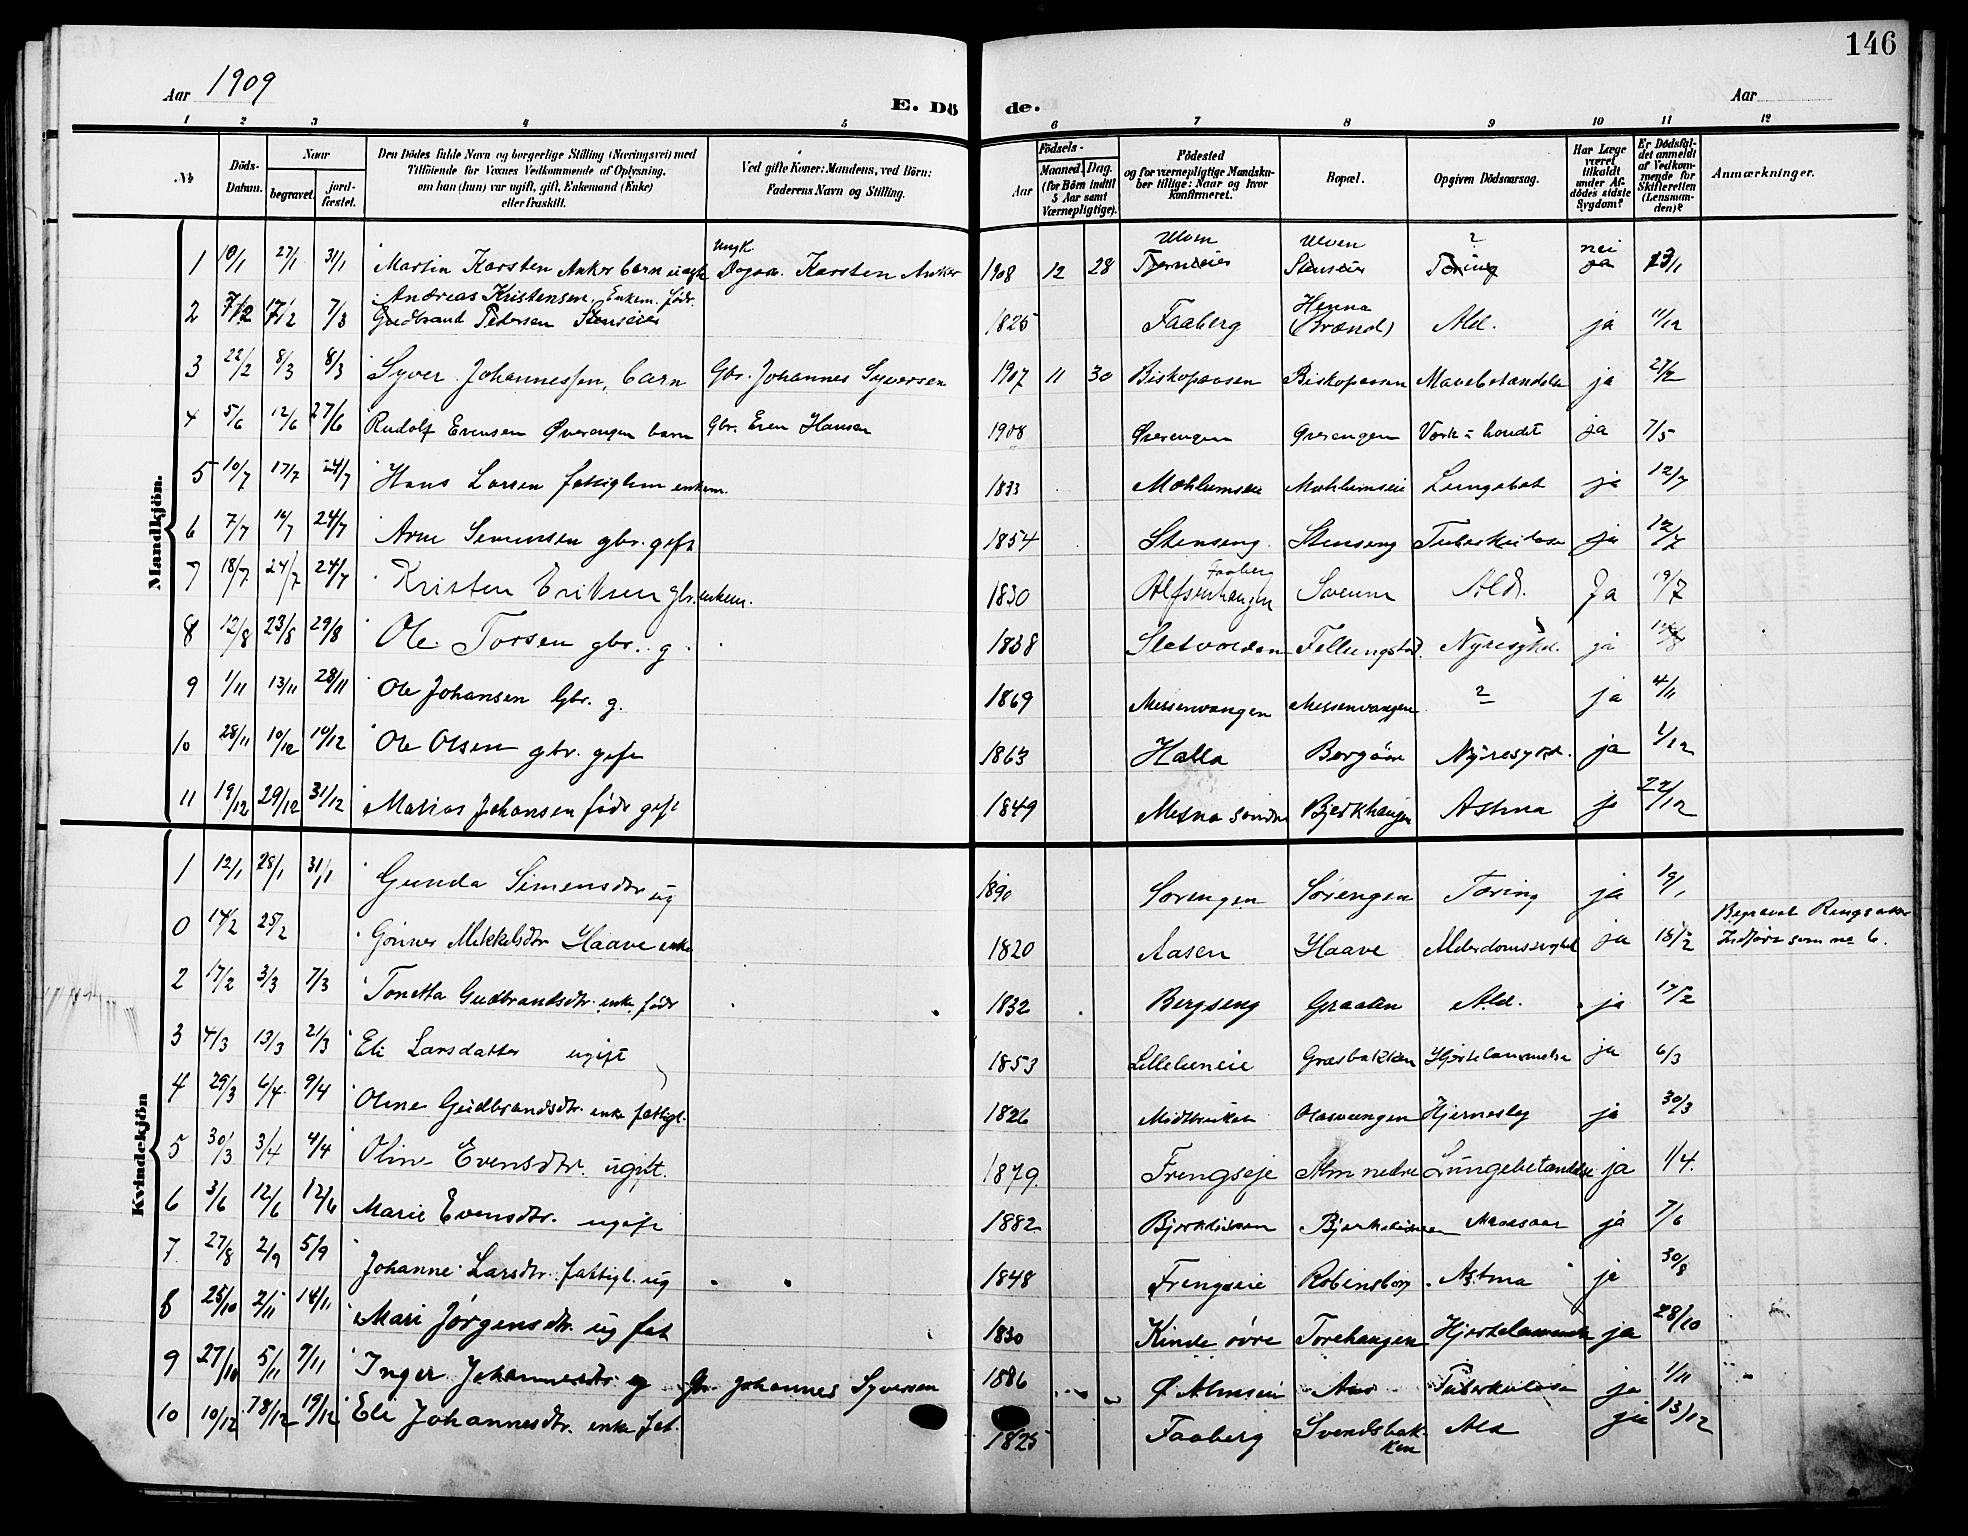 146
Aar 1909
E. Dö
de.
Aar
1 2 3 4 5 6 7 8 9 10 11 12
No
Döds-Datum.
Naar
begravet.
jord-fæstet.
Den Dödes fulde Navn og borgerlige Stilling (Næringsvei) med
Tilföiende for Voxnes Vedkommende af Oplysning,
om han (hun) var ugift, gift, Enkemand (Enke)
eller fraskilt.
Ved gifte Koner: Mandens, ved Börn:
Faderens Navn og Stilling.
Födsels-
Aar
Maaned. Dag.
(for Börn indtil
5 Aar samt
Værnepligtige).
Födested
og for værnepligtige Mandska-
ber tillige: Naar og hvor
konfirmeret.
Bopæl.
Opgiven Dödsaarsag.
Har Læge
været
tilkaldt
under Af-
dödes sidste
Sygdom?
Er Dödsfal-
det anmeldt
af Vedkom-
mende for
Skifteretten
(Lensman-
den)?
Anmærkninger.
Mandkjön.
1 10/1 27/1 31/1 Martin Karsten Anker barn uægte Ungk. Dagsa. Karsten Anker 1908 12 28 Ulven Ulven ? nei 13/1
2 7/3 Andreas Kristensen, Enkem. föder. Gudbrand Pedersen Stenseier 1825 Faaberg Henna (Brænd) Ald. ja 11/12
3 22/2 8/3 8/3 Syver Johannessen, barn Gbr. Johannes Syversen 1907 11 30 Biskopaasen Biskopaasen Mavebetændelse ja 27/2
4 5/6 12/6 27/6 Rudolf Evensen Øverengen barn Gbr. Even Hansen 1908 Øverengen Øverengen Værk i hovdet ja 7/5
5 10/7 17/7 24/7 Hans Larsen fattiglem enkem. 1833 Mæhlumseie Mæhlumseie Lungebet ja 12/7
6 7/7 24/7 Arne Simensen gbr. gift 1854 Stenseng Stenseng Tuberkulose ja 12/7
7 18/7 24/7 24/7 Kristen Eriksen gbr. enkem. 1830 Faaberg Alfsenhaugen Ald. Ja 19/7
8 12/8 23/8 29/8 Ole Torsen gbr. g. 1838 Sletvolden Nyresykd. ja 14/8
9 1/11 13/11 28/11 Ole Johansen Gbr. g. 1869 Messenvangen Messenvangen ? ja 4/11
10 28/11 10/12 10/12 Ole Olsen gbr. gift 1863 Halla Nyresykd. ja 1/12
11 19/12 29/12 31/12 Matias Johansen föder gift 1849 Mesna söndre Bjerkhaugen Astma ja 22/12
Kvindekjön
1 12/1 28/1 31/1 Gunda Simensdtr ug 1890 Sörengen Sörengen Tæring ja 19/1
0 14/2 25/2 Mikkelsdtr Haave enke 1820 Aasen Haave Alderdomssvaghed ja 18/2 Begravet Ringsaker Indført som no 6.
2 17/2 3/3 7/3 Tonetta Gudbrandsdtr. enke föder 1832 Bergseng Graaten Ald. ja 17/2
3 4/3 13/3 21/3 Eli Larsdatter ugift 1853 Græsbakken Hjertelammelse ja 6/3
4 29/3 6/4 9/4 Oline Gudbrandsdtr. enke fattigl. 1826 Hjerneslag ja 30/3
5 30/3 3/4 4/4 Oline Evensdtr. ugift. 1879 Frengseje Alm nedre Lungebetændelse ja 1/4.
6 3/6 12/6 12/6 Marie Evensdtr. ugift 1882 ja 7/6
7 27/8 2/9 5/9 Johanne Larsdtr. fattigl. ug 1848 Frengseie Robinsborg Astma ja 30/8
8 25/10 2/11 14/11 Mari Jørgensdtr. ug fat 1830 Kinde övre Torehaugen Hjertelammelse ja 28/10
9 27/10 5/11 7/11 Inger Johannesdtr ug Gbr Johannes Syversen 1886 Ø Almseie Tuberkulose ja 1/11
10 10/12 18/12 19/12 Eli Johannesdtr. enke fat. 1825 Faaberg Svendsbakken Ald ja 13/12